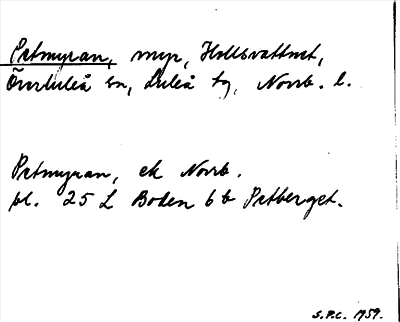 Petmyran, myr, Hollsvattnet,
Överluleå sn, Luleå tg, Norrb. l.
Petmyran, ek Norrb.
bl. 25 L Boden 6 b Petberget.
S.P.C. 1959.